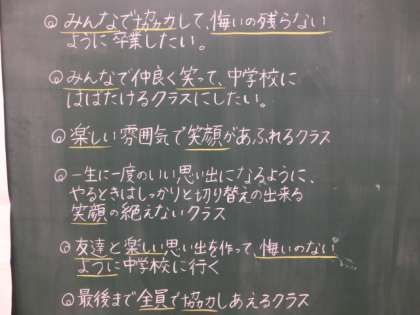 ◎みんなで協力して、悔いの残らない
ように卒業したい。
◎みんなで仲良く笑って、中学校に
はばたけるクラスにしたい。
◎楽しい雰囲気で笑顔があふれるクラス
◎一生に一度のいい思い出になるように、
やるときはしっかりと切り替えの出来る
笑顔の絶えないクラス
◎友達と楽しい思い出を作って、悔いのない
ように中学校に行く
◎最後まで全員で協力しあえるクラス